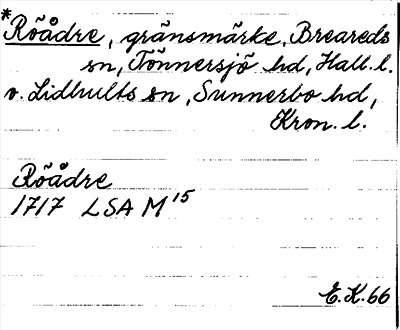 *Röådre, gränsmärke, Breareds
sn, Tönnersjö hd, Hall. l.
o. Lidhults sn, Sunnerbo hd,
Kron. l.
Röådre
1717 LSA M15
E.K.66